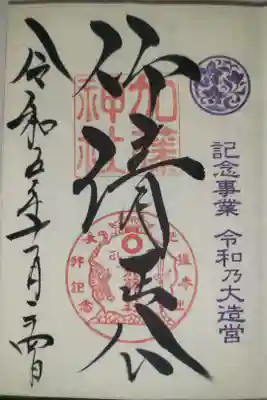 記念事業 令和乃大造営
加藤神社
仰清正公
令和五年 月 日